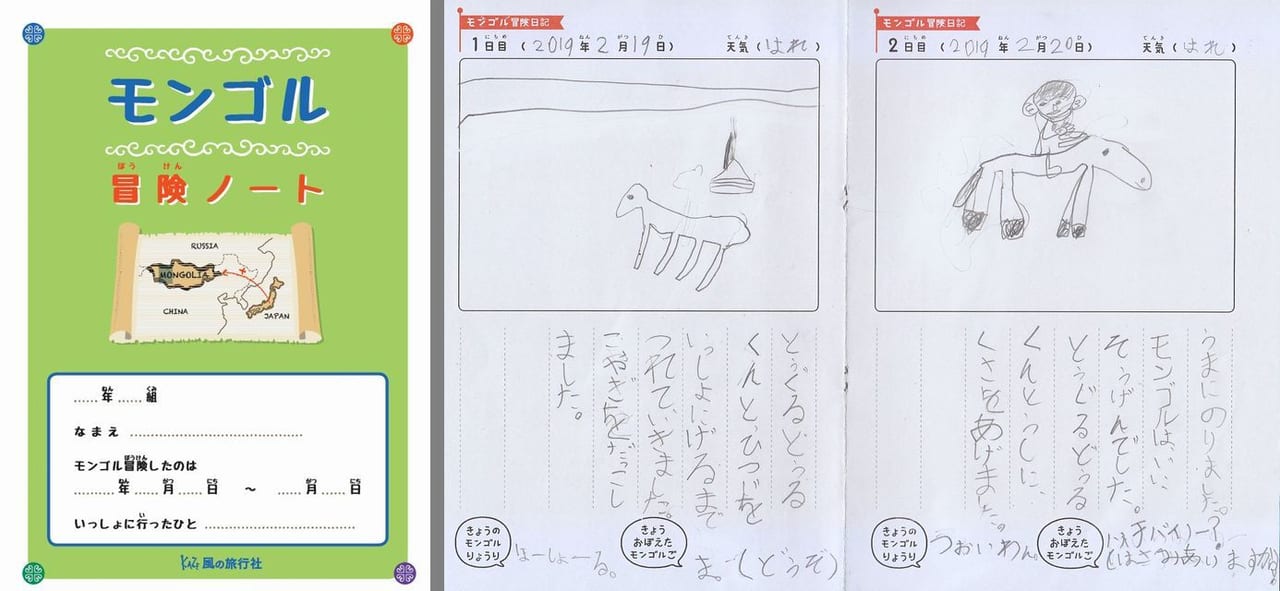 モンゴル
ぼう けん
冒険ノート
RUSSIA
MONGOLIA
CHINA
JAPAN
......年......組
なまえ
モンゴル冒険したのは
......年......月......日 ～ ......月......日
いっしょに行ったひと
KAZE 風の旅行社
モンゴル冒険日記
1日目 (2019年2月19日) 天気(はれ)
とぅぐるどぅる
くんと、ひつじを
いっしょにげるまで
つれていきました。
こやぎをだっこし
ました。
きょうの
モンゴル
りょうり
ほーしょーる。
きょう
おぼえた
モンゴルご
ま。(どうぞ)
モンゴル冒険日記
2日目 (2019年2月20日) 天気(はれ)
うまにのりました。
モンゴルは、いい
そうげんでした。
とぅぐるどぅる
くんといっしに、
くさをあげました。
きょうの
モンゴル
りょうり
つおいわん。
きょう
おぼえた
モンゴルご